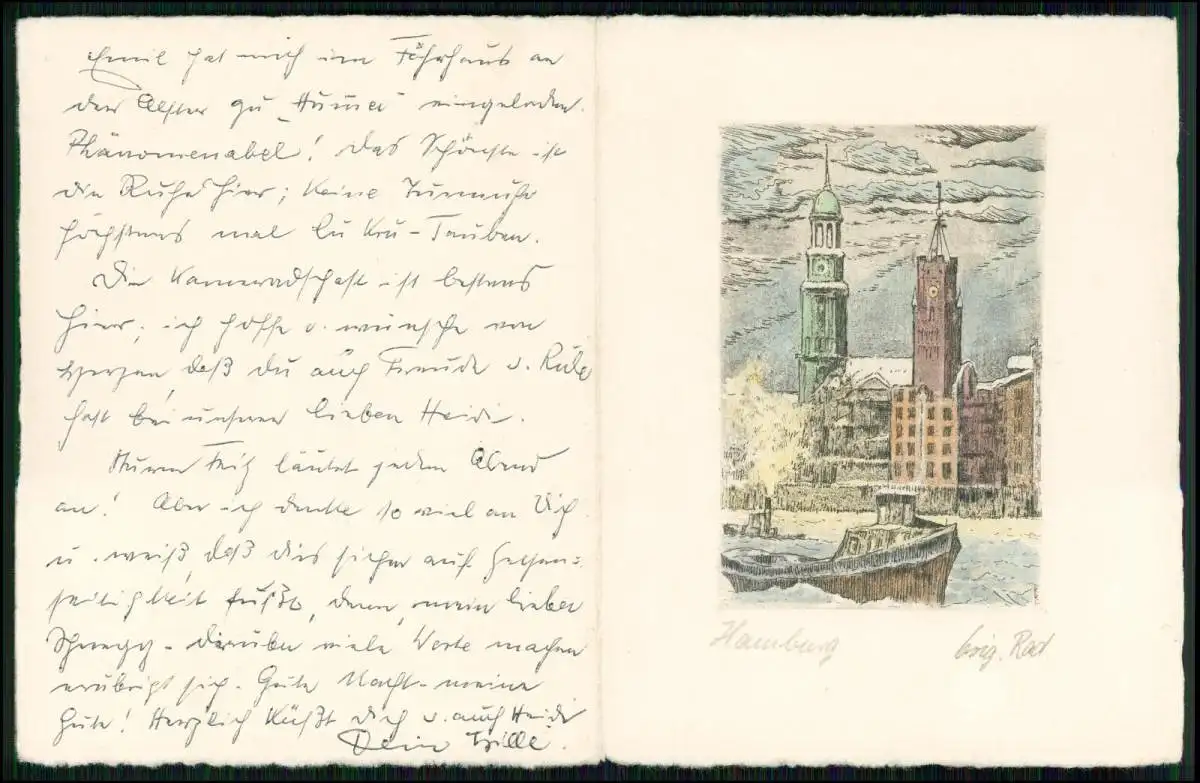 Emil hat mich im Fährhaus an
der Alster zu "Hummer" eingeladen.
Phänomenabel! Das Schönste ist
die Ruhe hier; keine Turmuhr
höchstens mal Gu Kru-Tauben.
Die Kameradschaft ist bestens
hier; ich hoffe u. wünsche von
Herzen, daß Du auch Freude u. Ruhe
hast bei unserer lieben Heidi.
Fritz läutet jeden Abend
an! Aber ich denke so viel an Dich
u. weiß, daß dies sicher auf Gegen-
seitigkeit fußt, denn, mein lieber
- darüber viele Worte machen
erübrigt sich. Gute Nacht - meine
Gute! Herzlich küßt Dich u. auch Heidi
Dein
Hamburg
orig. Rad